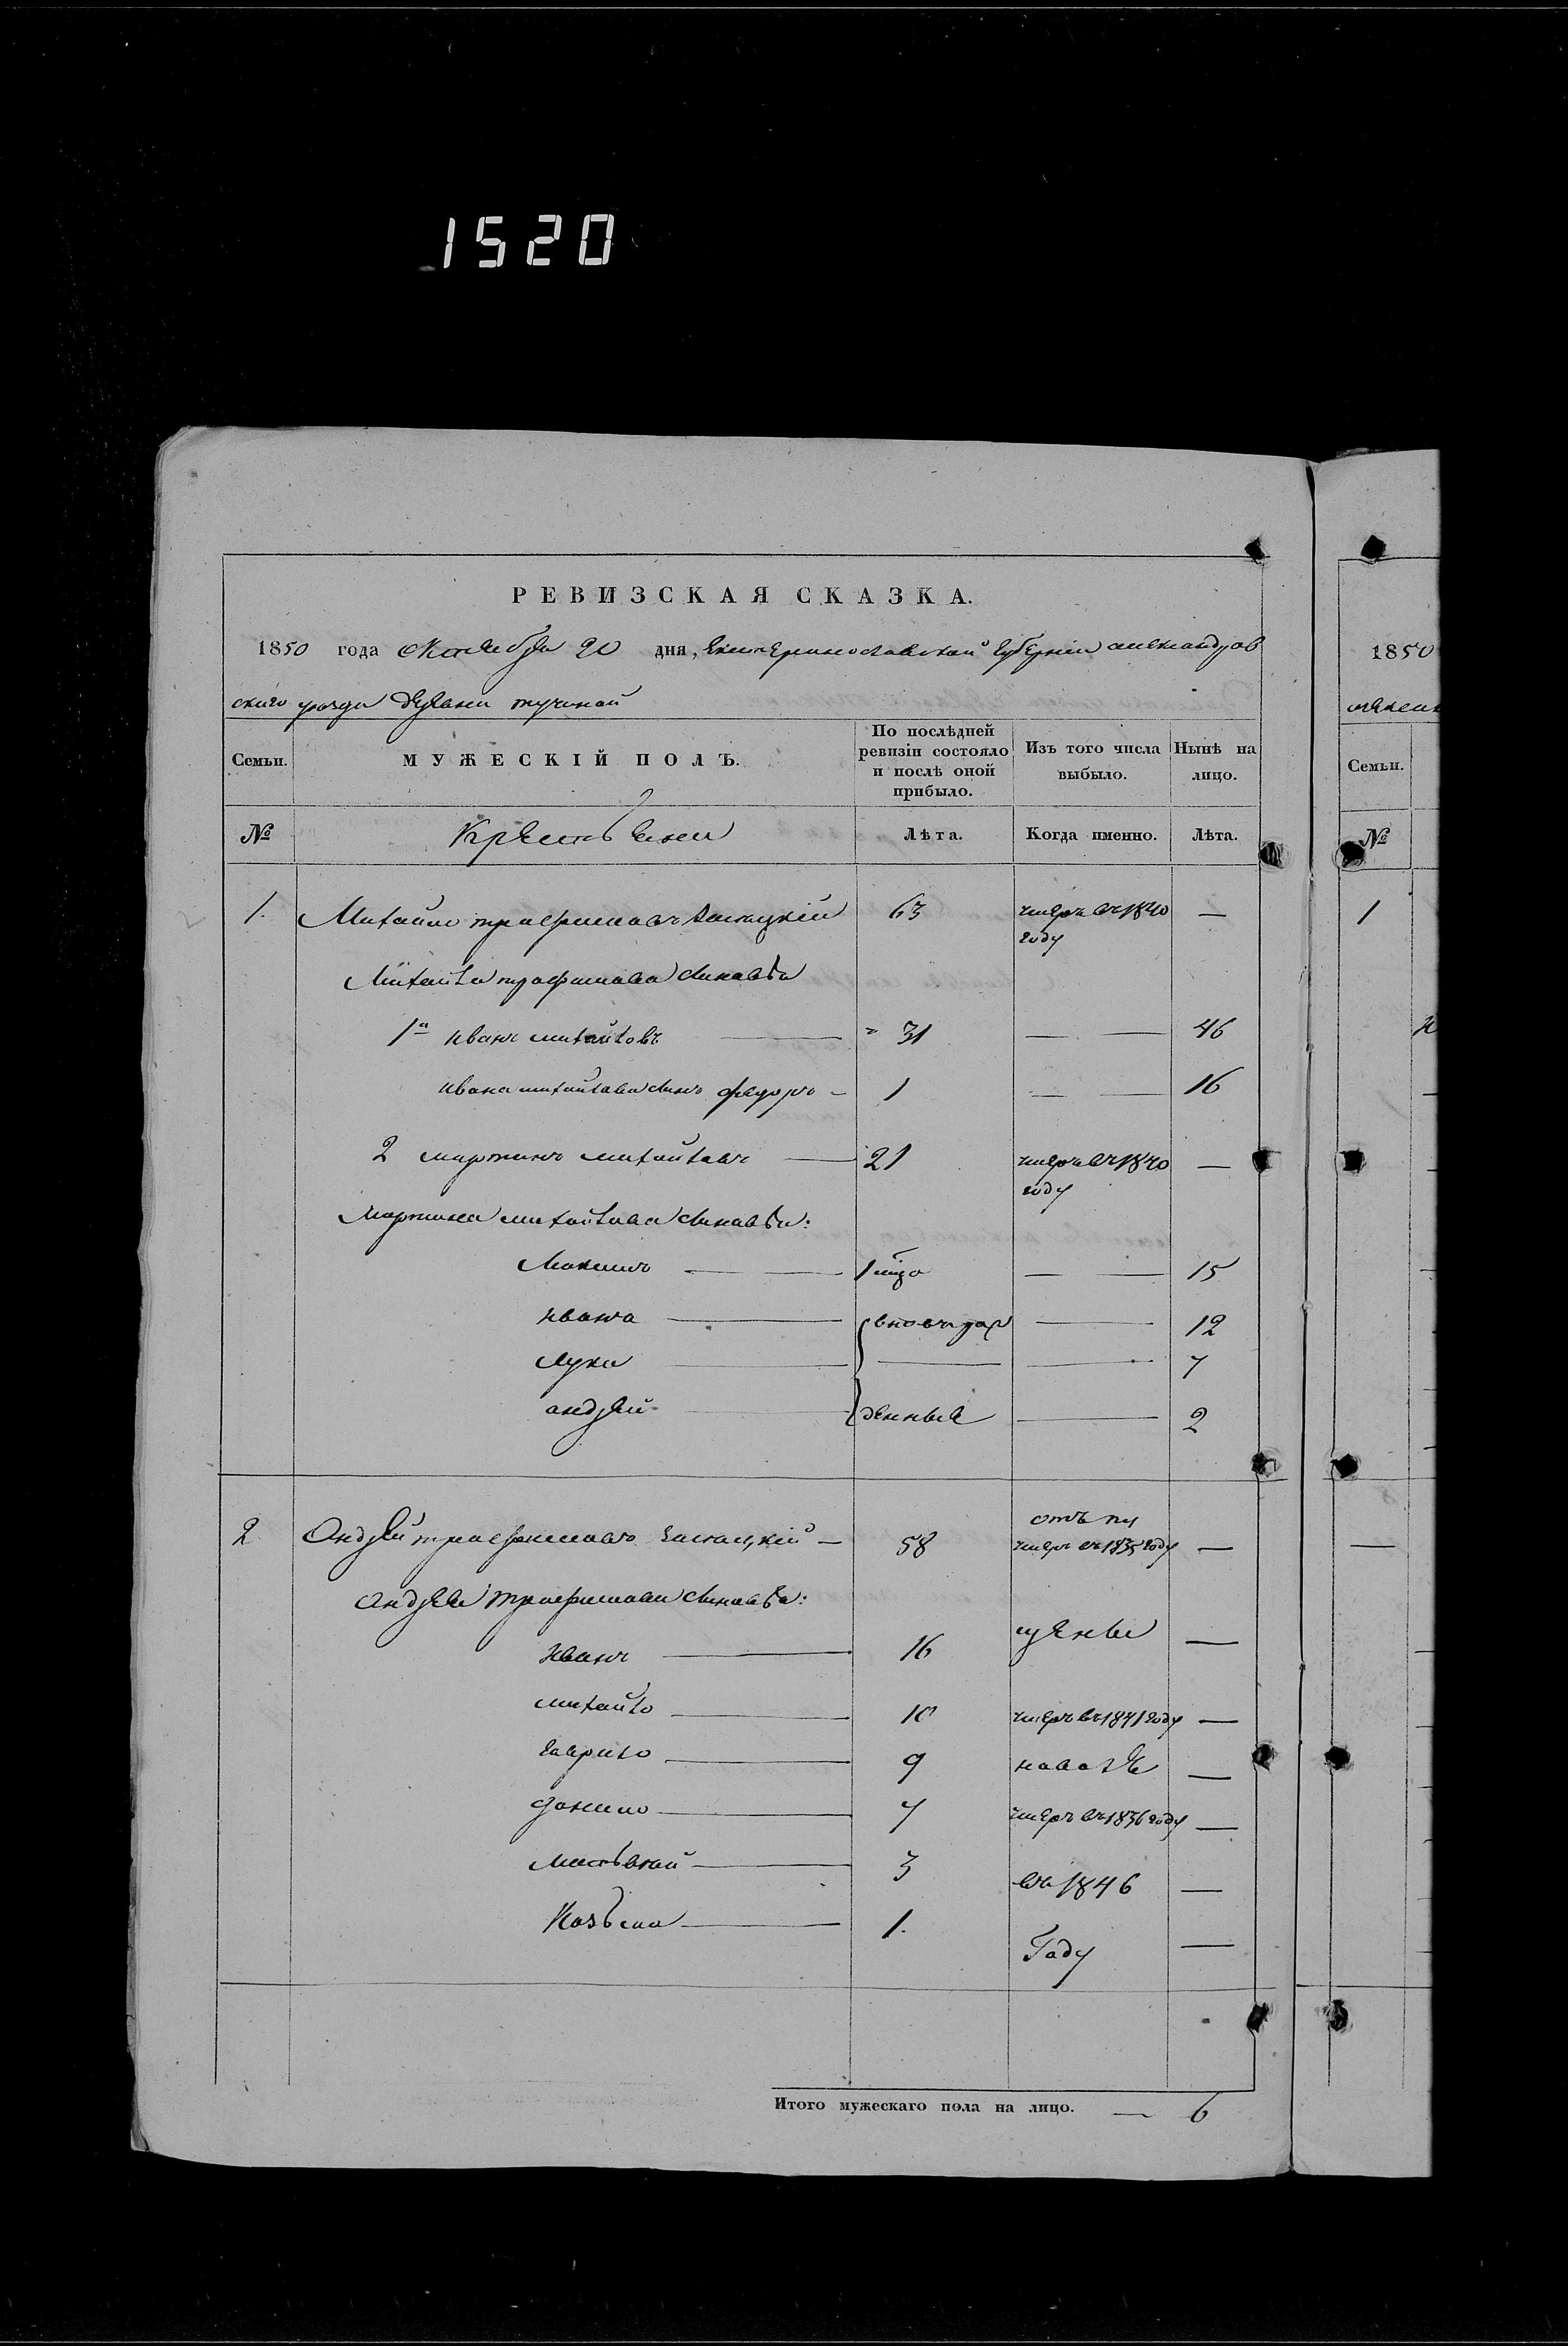 1520
РЕВИЗСКАЯ СКАЗКА.
1850 года Октебря 20 дня, Екатеринославской губернии александров
скаго уезда деревни тучиной
Семьи. МУЖЕСКІЙ ПОЛЪ. По послѣдней ревизіи состояло и послѣ оной прибыло. Изъ того числа выбыло. Нынѣ на лицо.
№ Крестьяни Лѣта. Когда именно. Лѣта.
1. Михайло трафимовъ 63 умеръ въ 1840 году —
Михайла трафимова синавья
1й иванъ михайловъ 31 — — 46
ивана михайлава синъ федоръ 1 — — 16
2 мартинъ михайлавъ 21 умеръ въ 1840 году —
Мартина михайлава синавья:
Макимъ — — 15
ивана вновь рож — 12
Лука — — 7
андрей денныя — 2
2 Андрей трафимавъ 58 умеръ въ 1835 году —
Андрея трафимава синавья:
Иванъ 16 отъ пу щены —
михайло 10 умеръ въ 1841 году —
гаврило 9 на воля —
данило 7 умеръ въ 1836 году —
3 въ 1846 —
Козьма 1. Году —
Итого мужескаго пола на лицо. — 6
1850
Семьи.
№
1